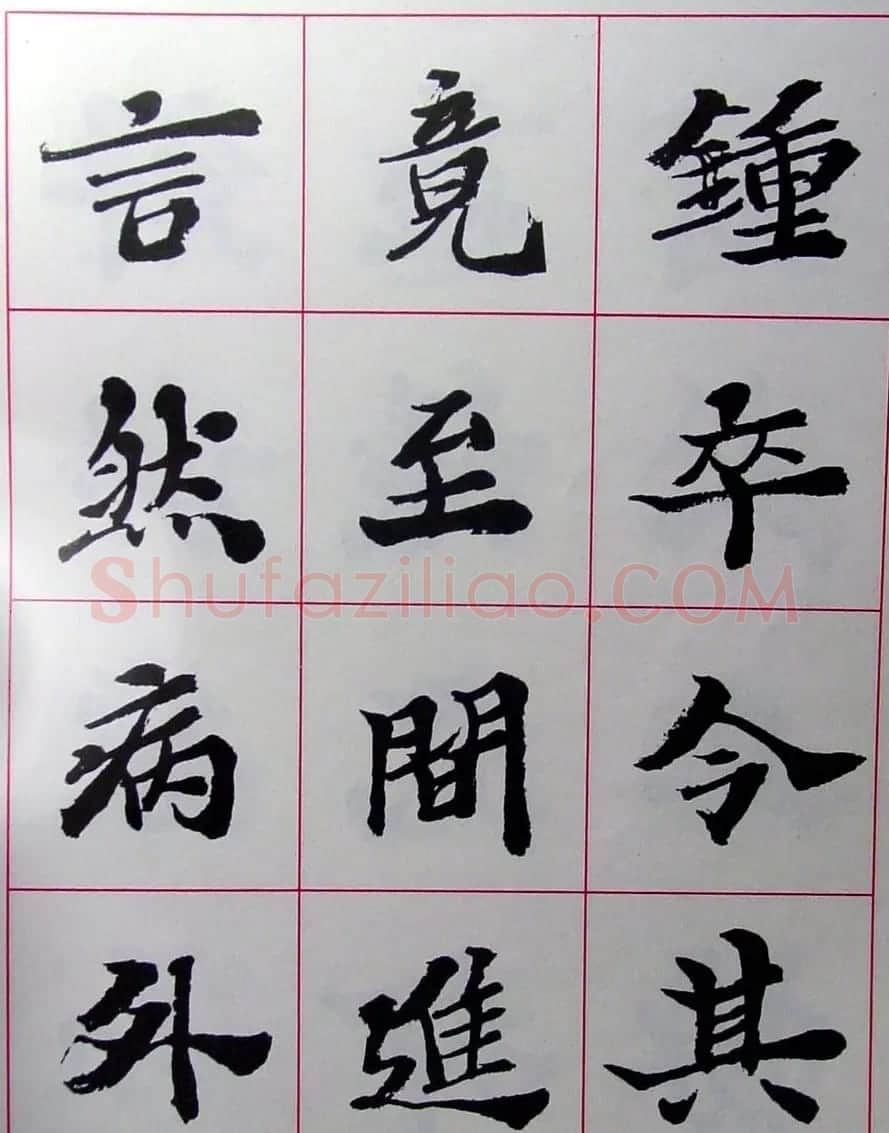 鍾卒令其
竟至間進
言然病外
Shufaziliao.COM